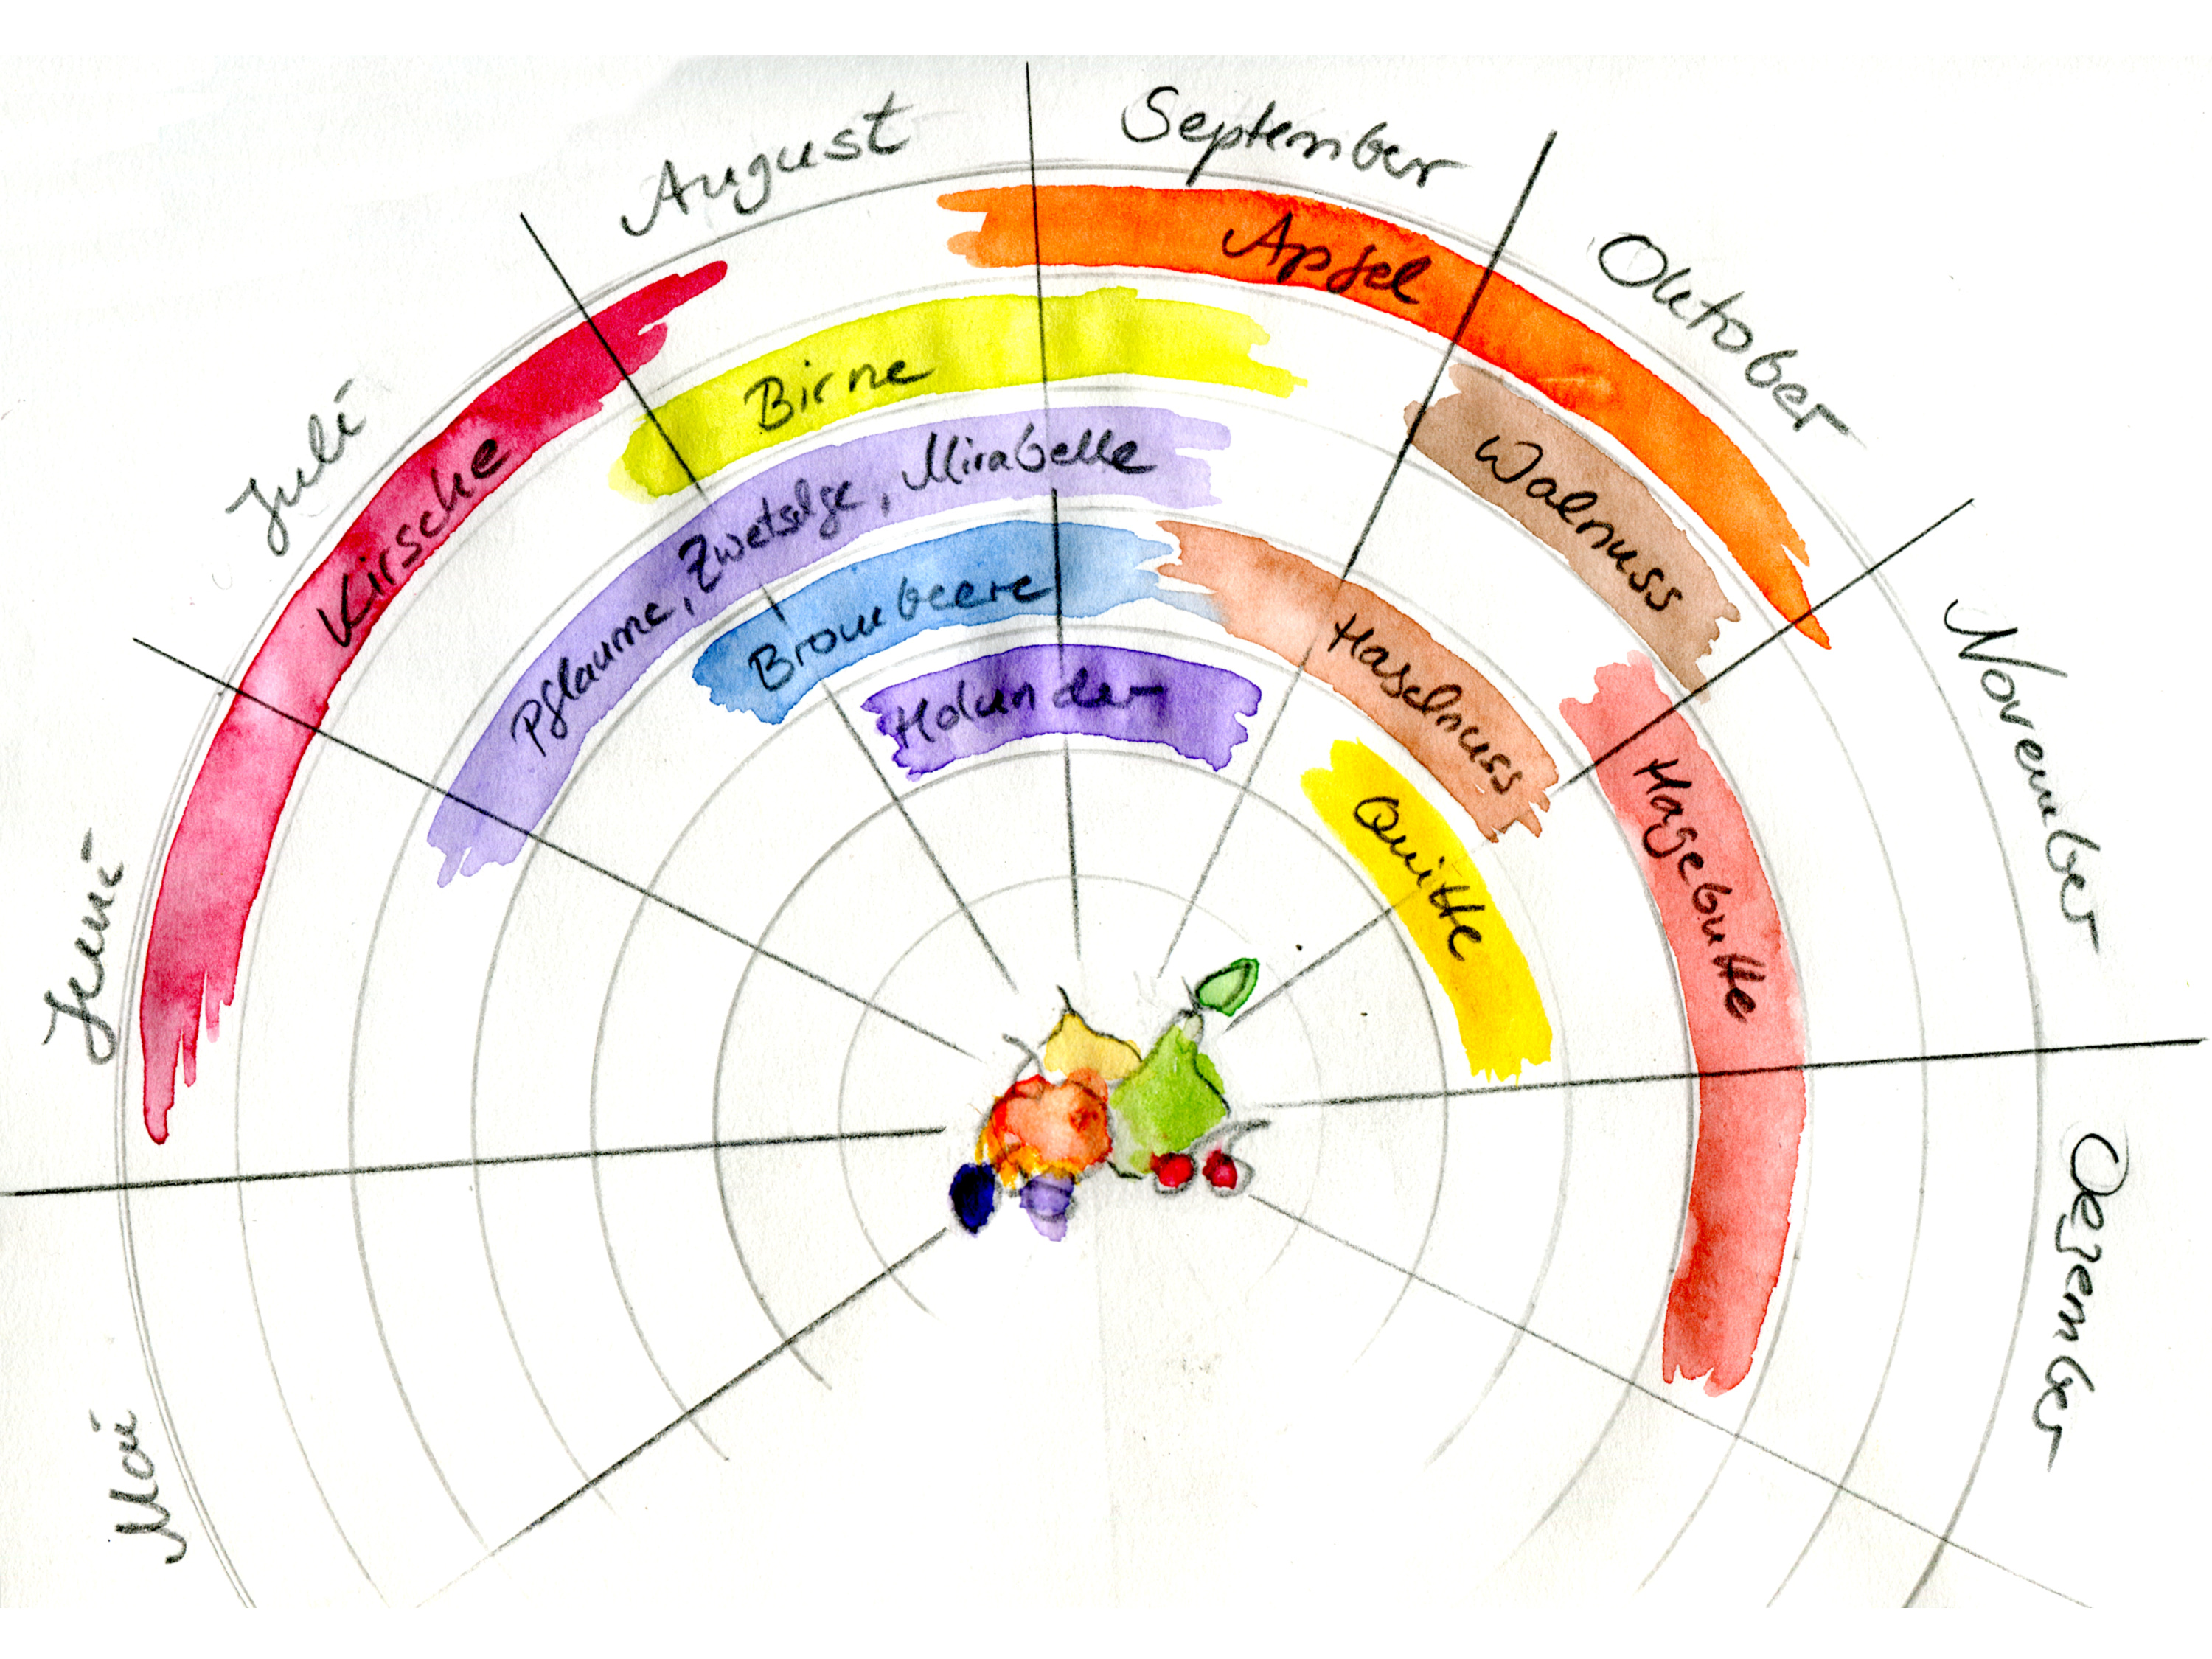 Mai
Juni
Juli
August
September
Oktober
November
Dezember
Kirsche
Apfel
Birne
Walnuss
Pflaume, Zwetschge, Mirabelle
Brombeere
Haselnuss
Hagebutte
Holunder
Quitte